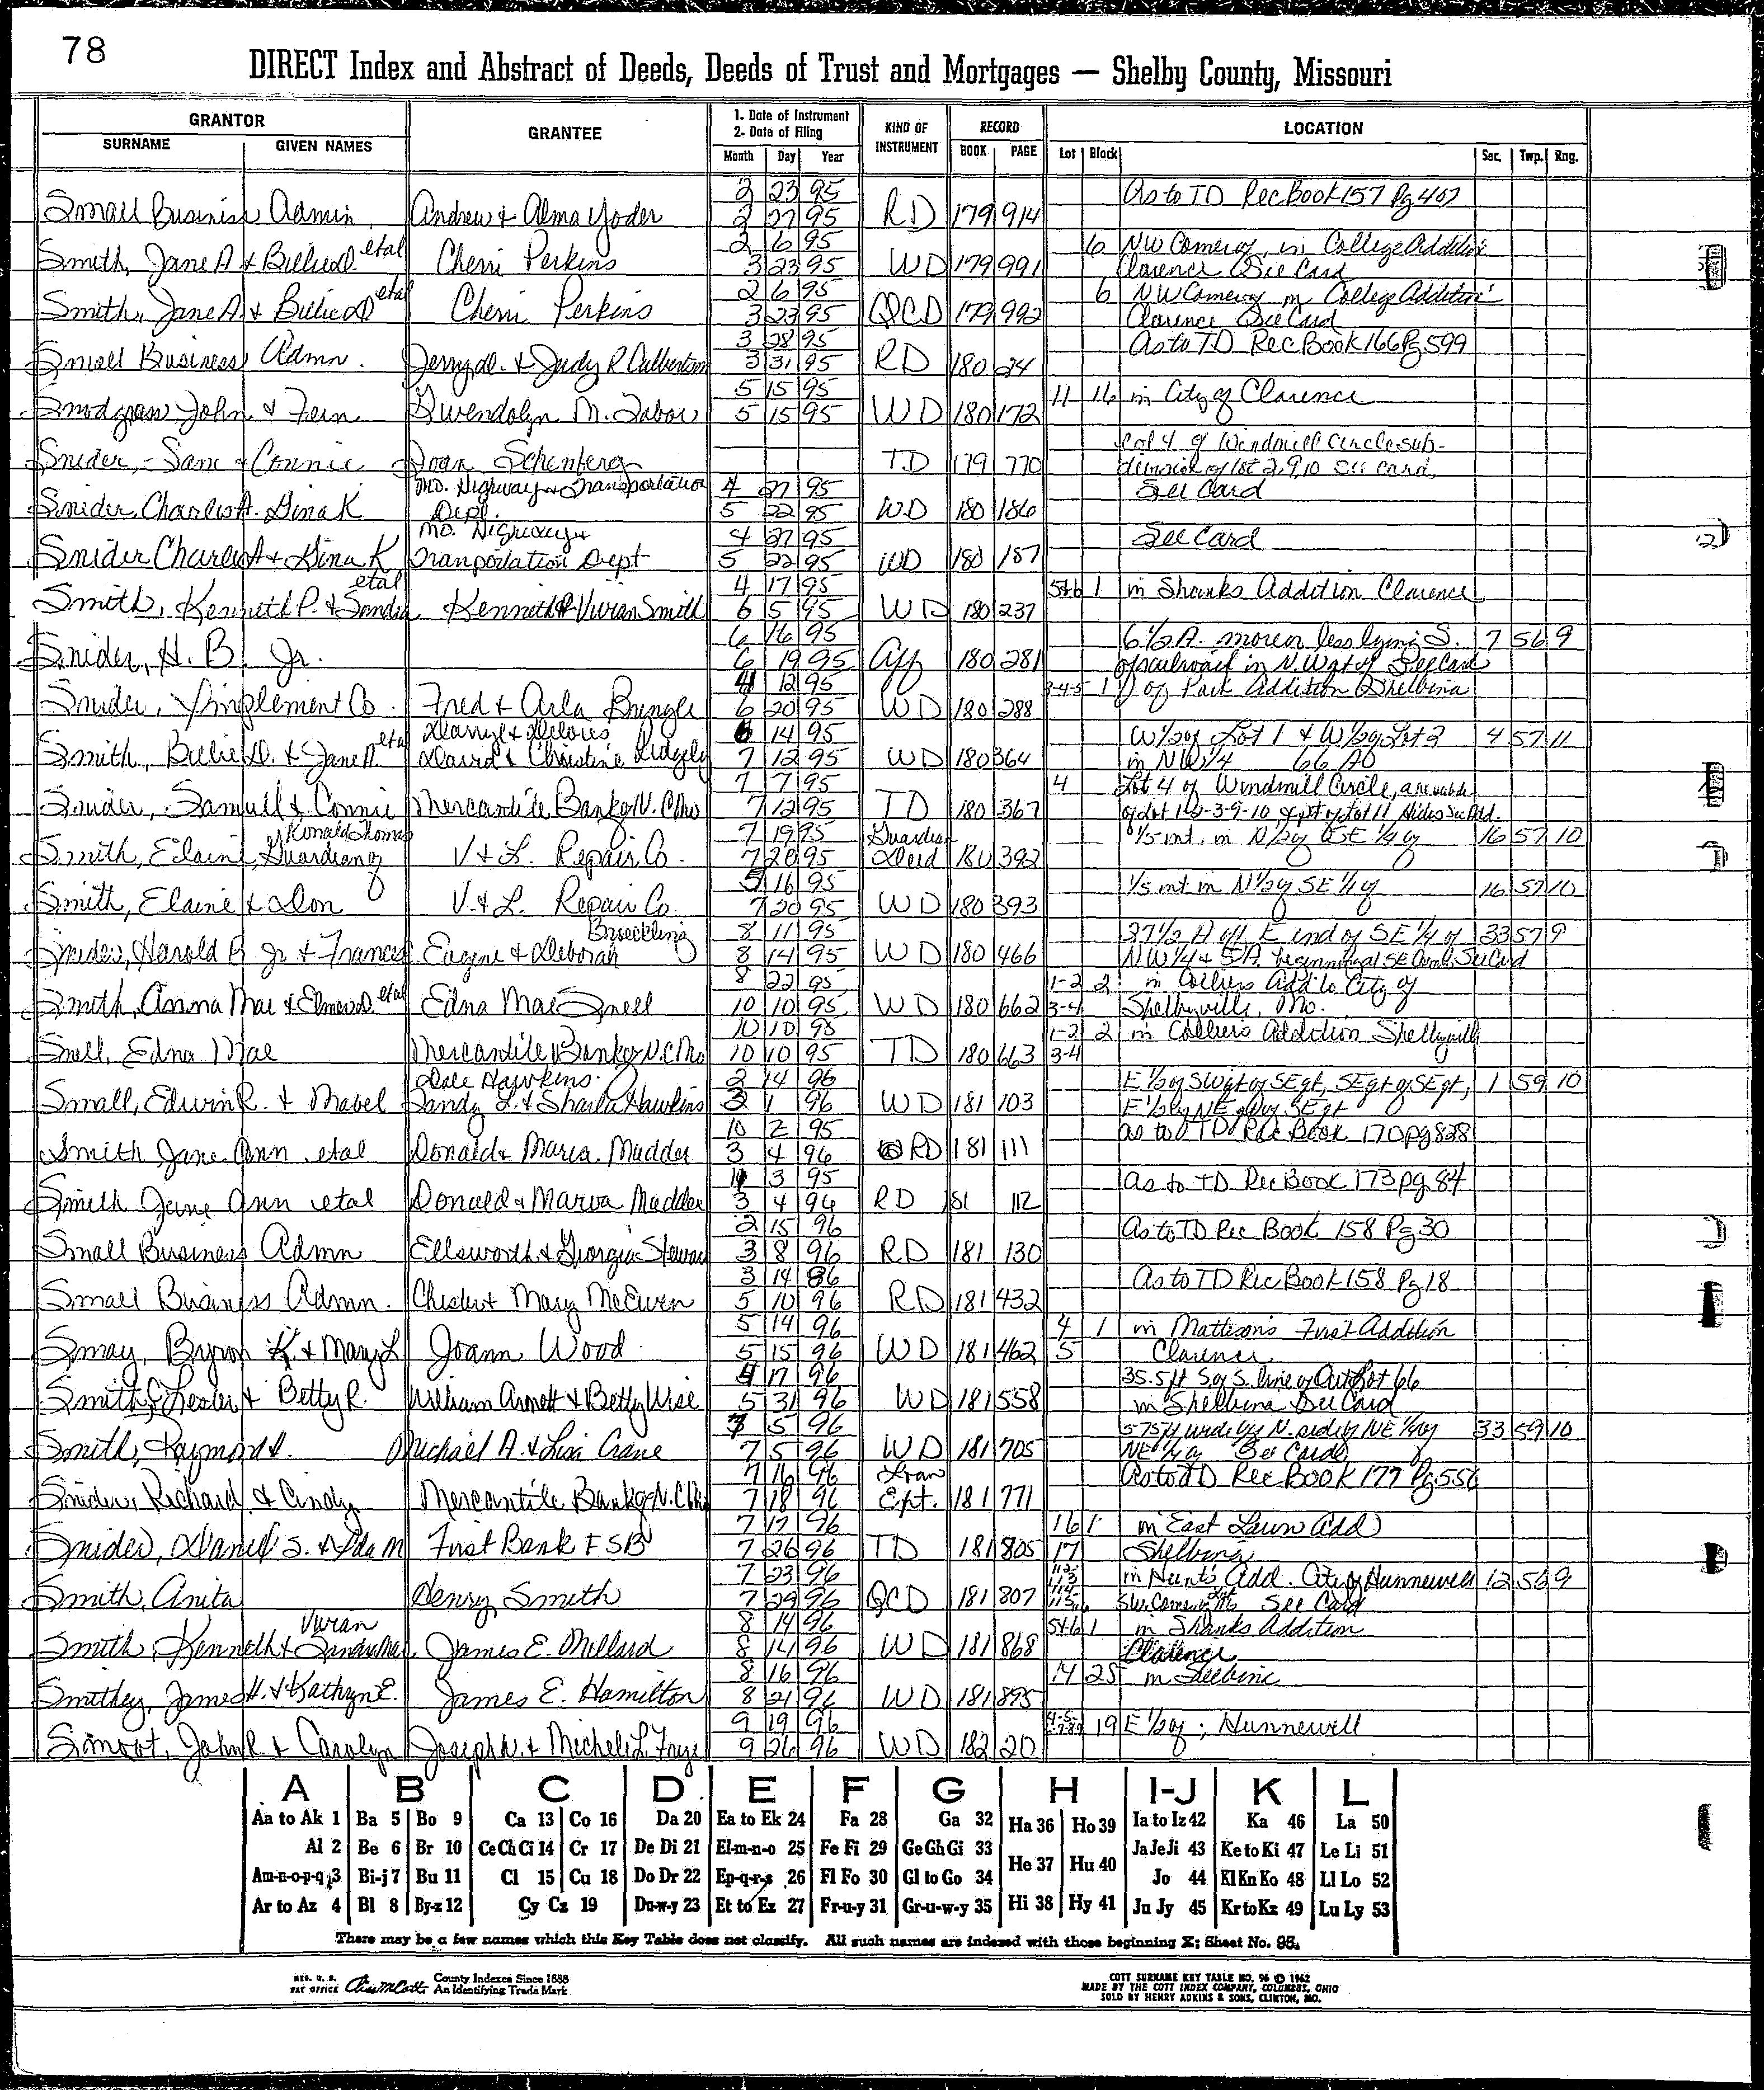 78
DIRECT Index and Abstract of Deeds, Deeds of Trust and Mortgages — Shelby County, Missouri
GRANTOR
SURNAME GIVEN NAMES
GRANTEE
1. Date of Instrument
2. Date of Filing
Month Day Year
KIND OF INSTRUMENT
RECORD
BOOK PAGE
LOCATION
Lot Block Sec. Twp. Rng.
2 23 95 As to TD Rec Book 157 Pg 407
Small Business Admin. Andrew & Alma Yoder 2 27 95 RD 179 914
Smith, Jane A & Billie D. etal Cherri Perkins 2 6 95 6 NW Corner of, in College Addition
3 23 95 WD 179 991 Clarence See Card
Smith, Jane A. & Billie D etal Cherri Perkins 2 6 95 6 NW Corner of in College Addition
3 23 95 QCD 179 992 Clarence See Card
3 28 95 As to TD Rec Book 166 Pg 599
Small Business Admn. Jerry D. & Judy R Culbertson 3 31 95 RD 180 24
5 15 95 11 16 in City of Clarence
Snodgrass John & Fern Gwendolyn M. Tabor 5 15 95 WD 180 172
Lot 4 of Windmill Circle sub-
Snider, Sam & Connie Joan Schenberg TD 179 770 division of lot 2, 9, 10 See card
Mo. Highway & Transportation 4 27 95 See Card
Snider, Charles A. Gina K Dept. 5 22 95 WD 180 186
Mo. Highway & 4 27 95 See Card
Snider Charles A & Gina K Tranportation Dept 5 22 95 WD 180 187
etal 4 17 95 5+6 1 in Shanks Addition Clarence
Smith, Kenneth P. & Sandra Kenneth & Vivian Smith 6 5 95 WD 180 237
6 16 95 6 1/2 A. more or less lying S. 7 56 9
Snider, H. B. Jr. 6 19 95 Aff 180 281 of railroad in N.W qt of See Card
4 12 95 3-4-5 1 of Park Addition Shelbina
Snider, Implement Co. Fred & Arla Bringer 6 20 95 WD 180 288
Darryl & Delores 6 14 95 W 1/2 of Lot 1 & W 1/2 of Lot 2 4 57 11
Smith, Billie D. & Jane A. etal David & Christine Ridgely 7 12 95 WD 180 364 in NW 1/4 66 AC
7 7 95 4 Lot 4 of Windmill Circle, a re
Snider, Samuel & Connie Mercantile Bank of N.C Mo 7 12 95 TD 180 367
Ronald Thomas 7 19 95 Guardian 1/5 int. in N 1/2 of SE 1/4 of 16 57 10
Smith, Elaine, Guardian of V & L. Repair Co. 7 20 95 Deed 180 392
5 16 95 1/5 int in N 1/2 of SE 1/4 of 16 57 10
Smith, Elaine & Don V. & L. Repair Co. 7 20 95 WD 180 393
Broeckling 8 11 95 37 1/2 A off E end of SE 1/4 of 33 57 9
Snider, Harold B. Jr & Frances Eugene & Deborah 8 14 95 WD 180 466 NW 1/4 & 5 A. beginning at SE See Card
8 22 95 1-2 2 in Colliers Add to City of
Smith, Anna Mae & Elmer D. etal Edna Mae Snell 10 10 95 WD 180 662 3-4 Shelbyville, Mo.
10 10 95 1-2 2 in Colliers Addition Shelbyville
Snell, Edna Mae Mercantile Bank of N.C Mo 10 10 95 TD 180 663 3-4
Dale Hawkins 2 14 96 E 1/2 of SW qt of SE qt, SE qt of SE qt, 1 59 10
Small, Edwin R. & Mabel Randy L. & Sharla Hawkins 3 1 96 WD 181 103 E 1/2 of NE of SE qt
10 2 95 as to TD Rec Book 170 pg 828
Smith Jane Ann etal Donald & Marva Madden 3 4 96 RD 181 111
3 95 As to TD Rec Book 173 pg 84
Smith Jane Ann etal Donald & Marva Madden 3 4 96 RD 181 112
2 15 96 As to TD Rec Book 158 Pg 30
Small Business Admn Ellsworth & Georgia Stewart 3 8 96 RD 181 130
3 14 86 As to TD Rec Book 158 Pg 18
Small Business Admn. Chester & Mary McEwen 5 10 96 RD 181 432
5 14 96 4 1 in Mattison's First Addition
Smay, Byron K. & Mary L Joann Wood 5 15 96 WD 181 462 5 Clarence
4 17 96 35.5 ft S of S. line of Out Lot 66
Smith, Chester & Betty R. William Arnett & Betty Wise 5 31 96 WD 181 558 in Shelbina See Card
7 5 96 575 ft wide off N. side of NE 1/4 of 33 59 10
Smith, Raymond. Michael A. & Lisa Crane 7 5 96 WD 181 705 NE 1/4 of See Card
7 16 96 Loan As to TD Rec Book 177 Pg 556
Snider, Richard & Cindy Mercantile Bank of N. C Mo 7 18 96 Ext. 181 771
7 17 96 16 1 in East Lawn Add
Snider, Daniel S. & Ida M First Bank FSB 7 26 96 TD 181 805 17 Shelbina
7 23 96 in Hunts Add. City of Hunnewell 12 56 9
Smith, Anita Henry Smith 7 29 96 QCD 181 807 See Card
Vivian 8 14 96 5+6 1 in Shanks Addition
Smith, Kenneth & Sandra Mae James E. Millard 8 14 96 WD 181 868 Clarence
8 16 96 14 25 in Shelbina
Smithey, James H. & Kathryn E. James E. Hamilton 8 21 96 WD 181 895
9 19 96 19 E 1/2 of; Hunnewell
Smoot, John R & Carolyn Joseph W. & Michele L. Faye 9 26 96 WD 182 20
A B C D E F G H I-J K L
Aa to Ak 1 Ba 5 Bo 9 Ca 13 Co 16 Da 20 Ea to Ek 24 Fa 28 Ga 32 Ha 36 Ho 39 Ia to Iz 42 Ka 46 La 50
Al 2 Be 6 Br 10 Ce Ch Ci 14 Cr 17 De Di 21 El-m-n-o 25 Fe Fi 29 Ge Gh Gi 33 He 37 Hu 40 Ja Je Ji 43 Ke to Ki 47 Le Li 51
Am-n-o-p-q 3 Bi-j 7 Bu 11 Cl 15 Cu 18 Do Dr 22 Ep-q-r-s 26 Fl Fo 30 Gl to Go 34 Jo 44 Kl Kn Ko 48 Ll Lo 52
Ar to Az 4 Bl 8 By-z 12 Cy Cz 19 Du-w-y 23 Et to Ez 27 Fr-u-y 31 Gr-u-w-y 35 Hi 38 Hy 41 Ju Jy 45 Kr to Kz 49 Lu Ly 53
There may be a few names which this Key Table does not classify. All such names are indexed with those beginning X; Sheet No. 95.
REG. U. S. PAT OFFICE County Indexes Since 1888 An Identifying Trade Mark
COTT SURNAME KEY TABLE NO. 96 © 1962
MADE BY THE COTT INDEX COMPANY, COLUMBUS, OHIO
SOLD BY HENRY ADKINS & SONS, CLINTON, MO.